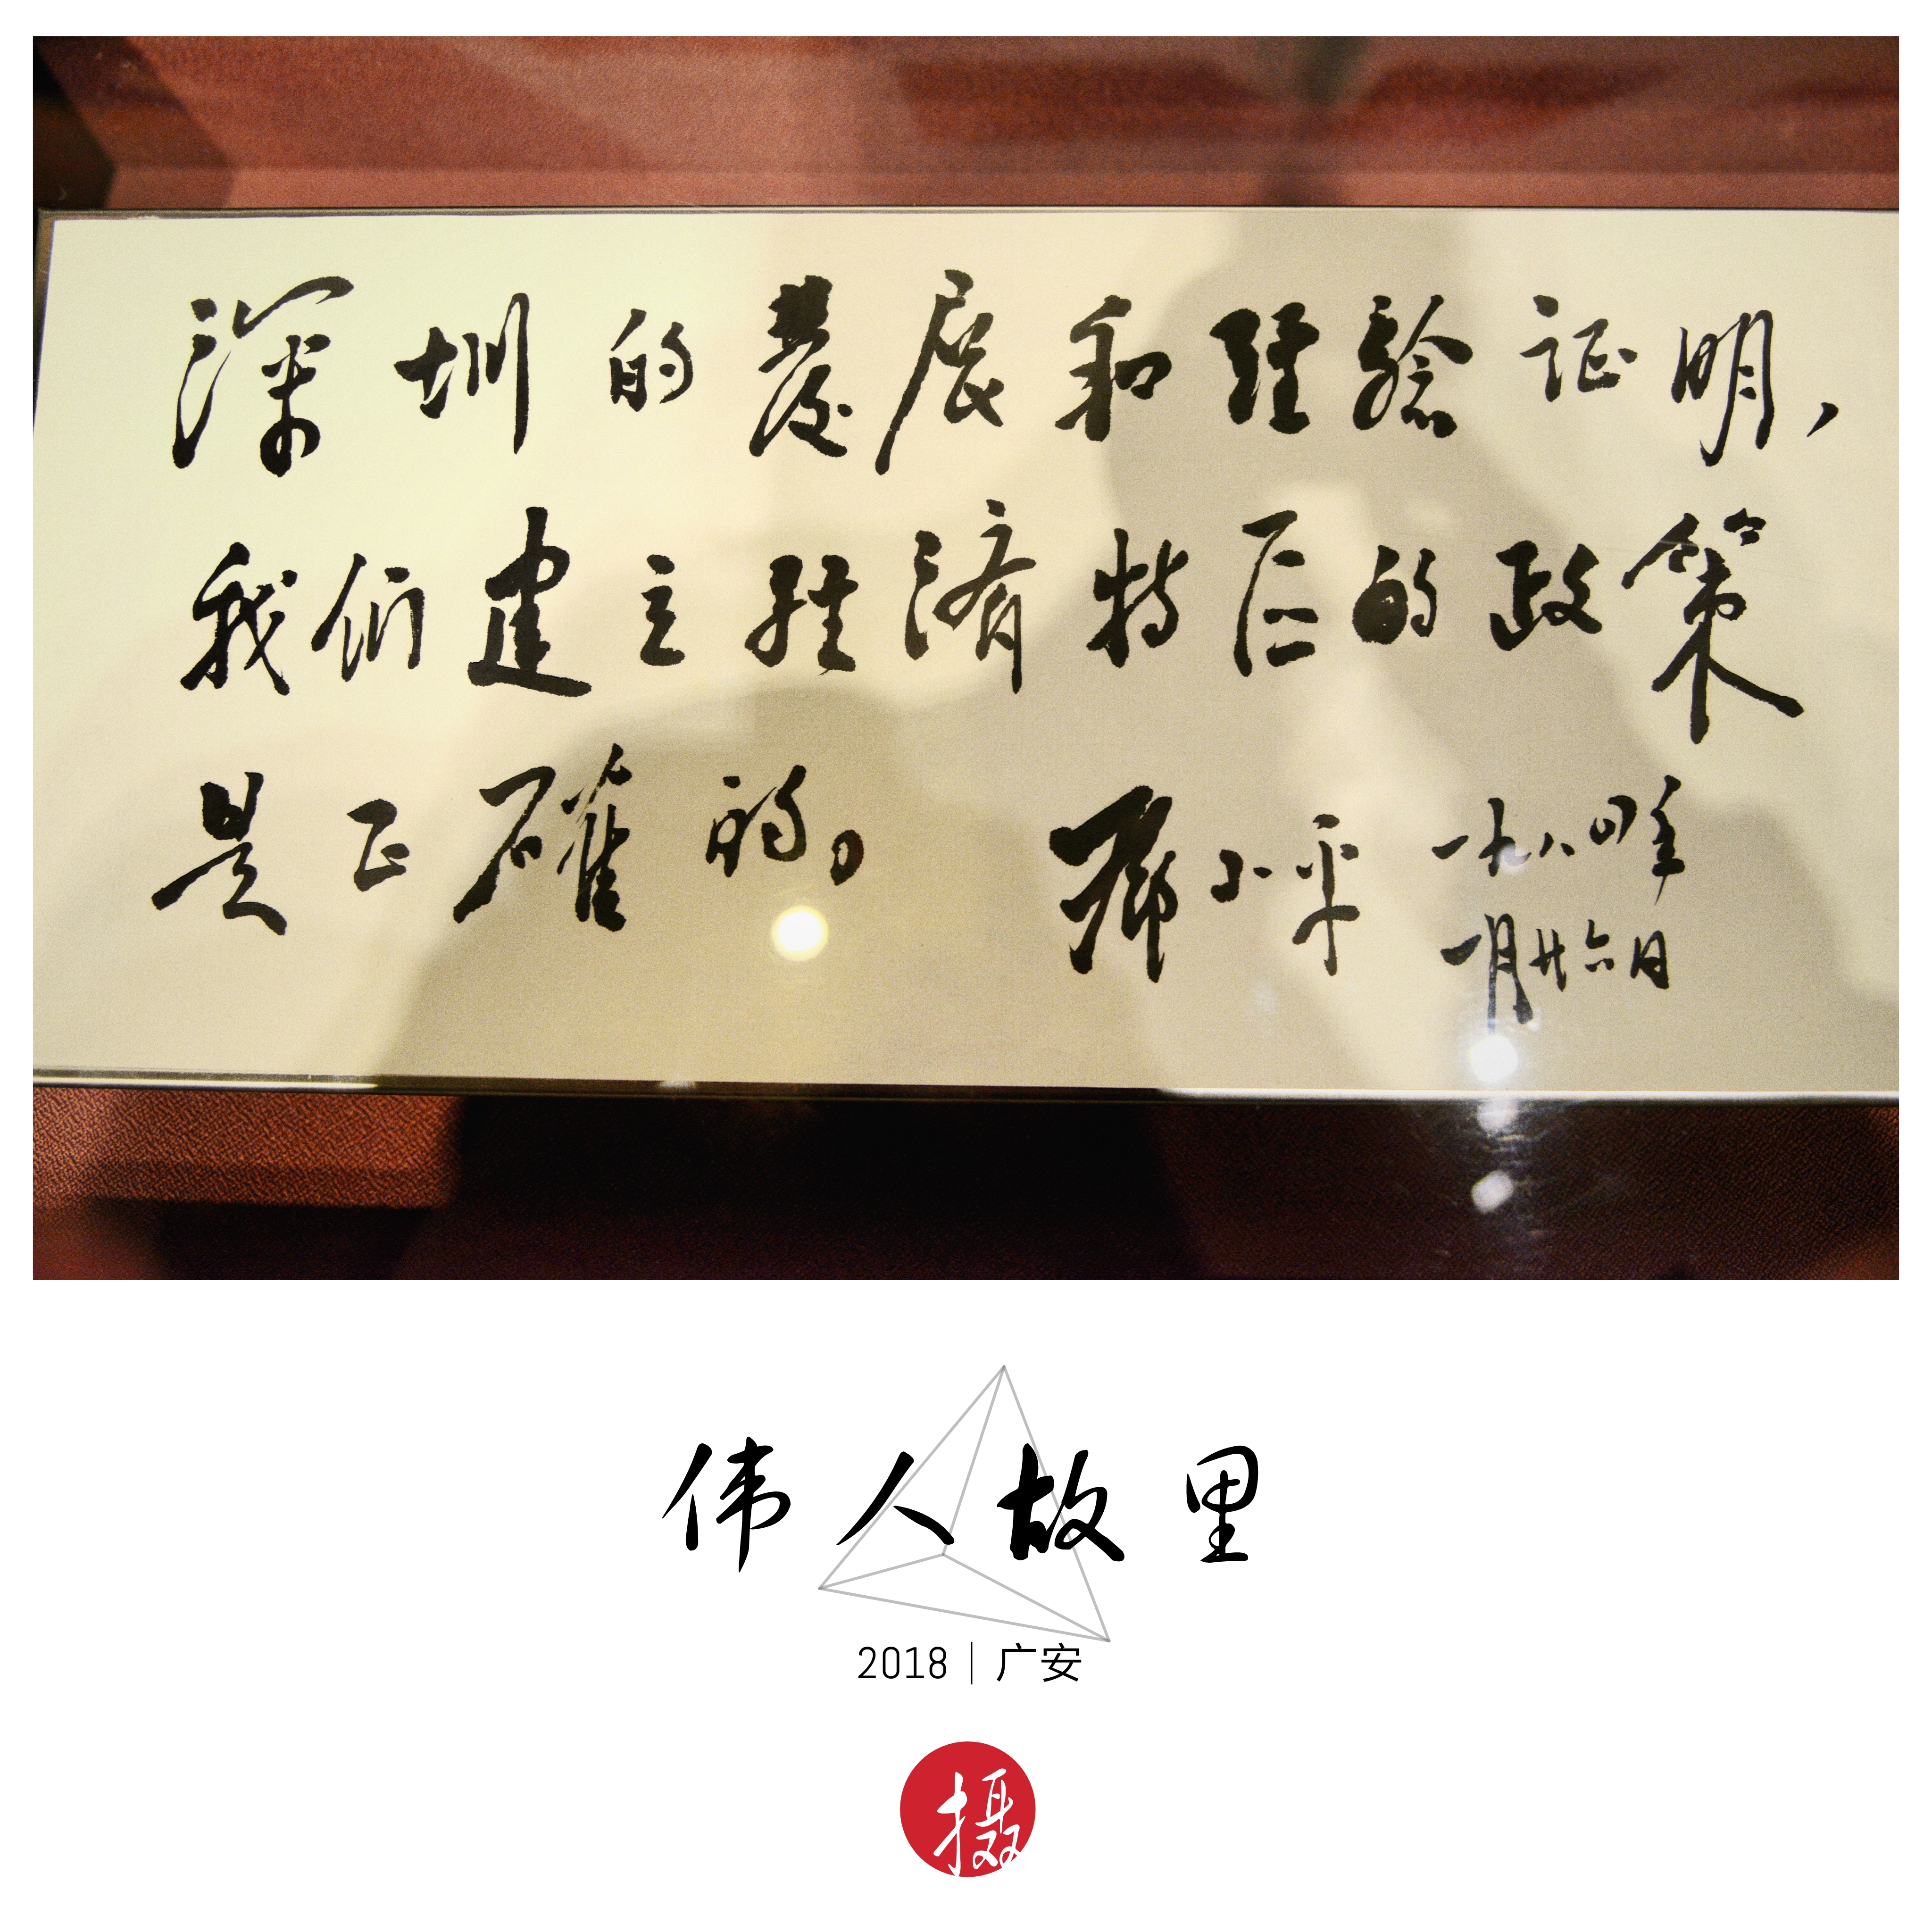 深圳的發展和经驗证明,
我们建立经濟特区的政策
是正確的。 邓小平 一九八四年
一月廿六日
伟人故里
2018 | 广安
摄